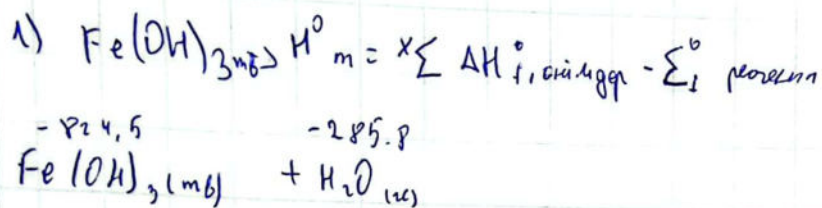 1) Fe(OH)₃тв> H⁰ m = x∑ ΔH°f, өнімдер - ∑°f
-824,5 -285.8
Fe(OH)₃(тв) + H₂O(ж)